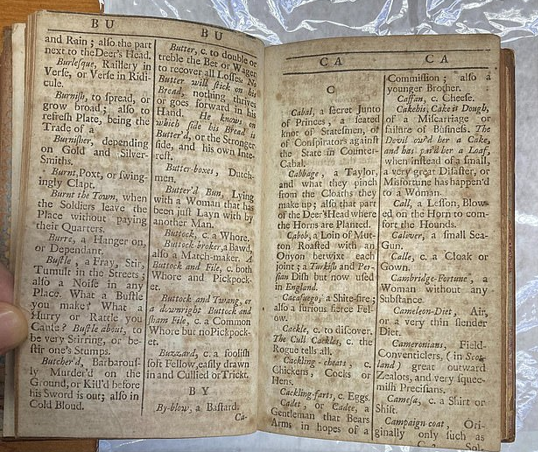 BU
and Rain; also the part
next to the Deer's Head.
Burlesque, Raillery in
Verse, or Verse in Ridi-
cule.
Burnish, to spread, or
grow broad; also to
refresh Plate, being the
Trade of a
Burnisher, depending
on Gold and Silver-
Smiths.
Burnt, Poxt, or swing-
ingly Clapt.
Burnt the Town, when
the Soldiers leave the
Place without paying
their Quarters.
Burre, a Hanger on,
or Dependant.
Bustle, a Fray, Stir,
Tumult in the Streets;
also a Noise in any
Place. What a Bustle
you make? What a
Hurry or Rattle you
Cause? Bustle about, to
be very Stirring, or be-
stir one's Stumps.
Butcher'd, Barbarous-
ly Murder'd on the
Ground, or Kill'd before
his Sword is out; also in
Cold Blood.
BU
Butter, c. to double or
treble the Bet or Wager
to recover all Losses. No
Butter will stick on his
Bread, nothing thrives
or goes forward in his
Hand. He knows on
which side his Bread is
Butter'd, or the Stronger
side, and his own Inte-
rest.
Butter-boxes, Dutch-
men.
Butter'd Bun, Lying
with a Woman that has
been just Layn with by
another Man.
Buttock, c. a Whore.
Buttock-broker, a Bawd,
also a Match-maker. A
Buttock and File, c. both
Whore and Pickpock-
et.
Buttock and Twang, or
a downright Buttock and
sham File, c. a Common
Whore but no Pickpock-
et.
Buzzard, c. a foolish
soft Fellow, easily drawn
in and Cullied or Trickt.
BY
By-blow, a Bastard.
Ca-
CA
C
Cabal, a secret Junto
of Princes, a seated
knot of Statesmen, of
of Conspirators against
the State in Counter-
Cabal.
Cabbage, a Taylor,
and what they pinch
from the Cloaths they
make up; also that part
of the Deer's Head where
the Horns are Planted.
Cabob, a Loin of Mut-
ton Roasted with an
Onyon betwixt each
joint; a Turkish and Per-
sian Dish but now used
in England.
Cacafuego; a Shite-fire;
also a furious fierce Fel-
low.
Cackle, c. to discover.
The Cull Cackles, c. the
Rogue tells all.
Cackling-cheats, c.
Chickens, Cocks or
Hens.
Cackling-farts, c. Eggs.
Cadet, or Cadee, a
Gentleman that Bears
Arms in hopes of a
CA
Commission; also a
younger Brother.
Caffan, c. Cheese.
Cakebis, Cake is Dough,
of a Miscarriage or
failure of Business. The
Devil ow'd her a Cake,
and has pai'd her a Loaf,
when instead of a small,
a very great Disaster, or
Misfortune has happen'd
to a Woman.
Calf, a Lesson, Blow-
ed on the Horn to com-
fort the Hounds.
Caliever, a small Sea-
Gun.
Calle, c. a Cloak or
Gown.
Cambridge-Fortune, a
Woman without any
Substance.
Cameleon-Diet, Air,
or a very thin slender
Diet.
Cameronians, Field-
Conventiclers, (in Scot-
land) great outward
Zealots, and very squee-
mish Precisians.
Camesa, c. a Shirt or
Shift.
Campaign-coat, Ori-
ginally only such as
Sol-